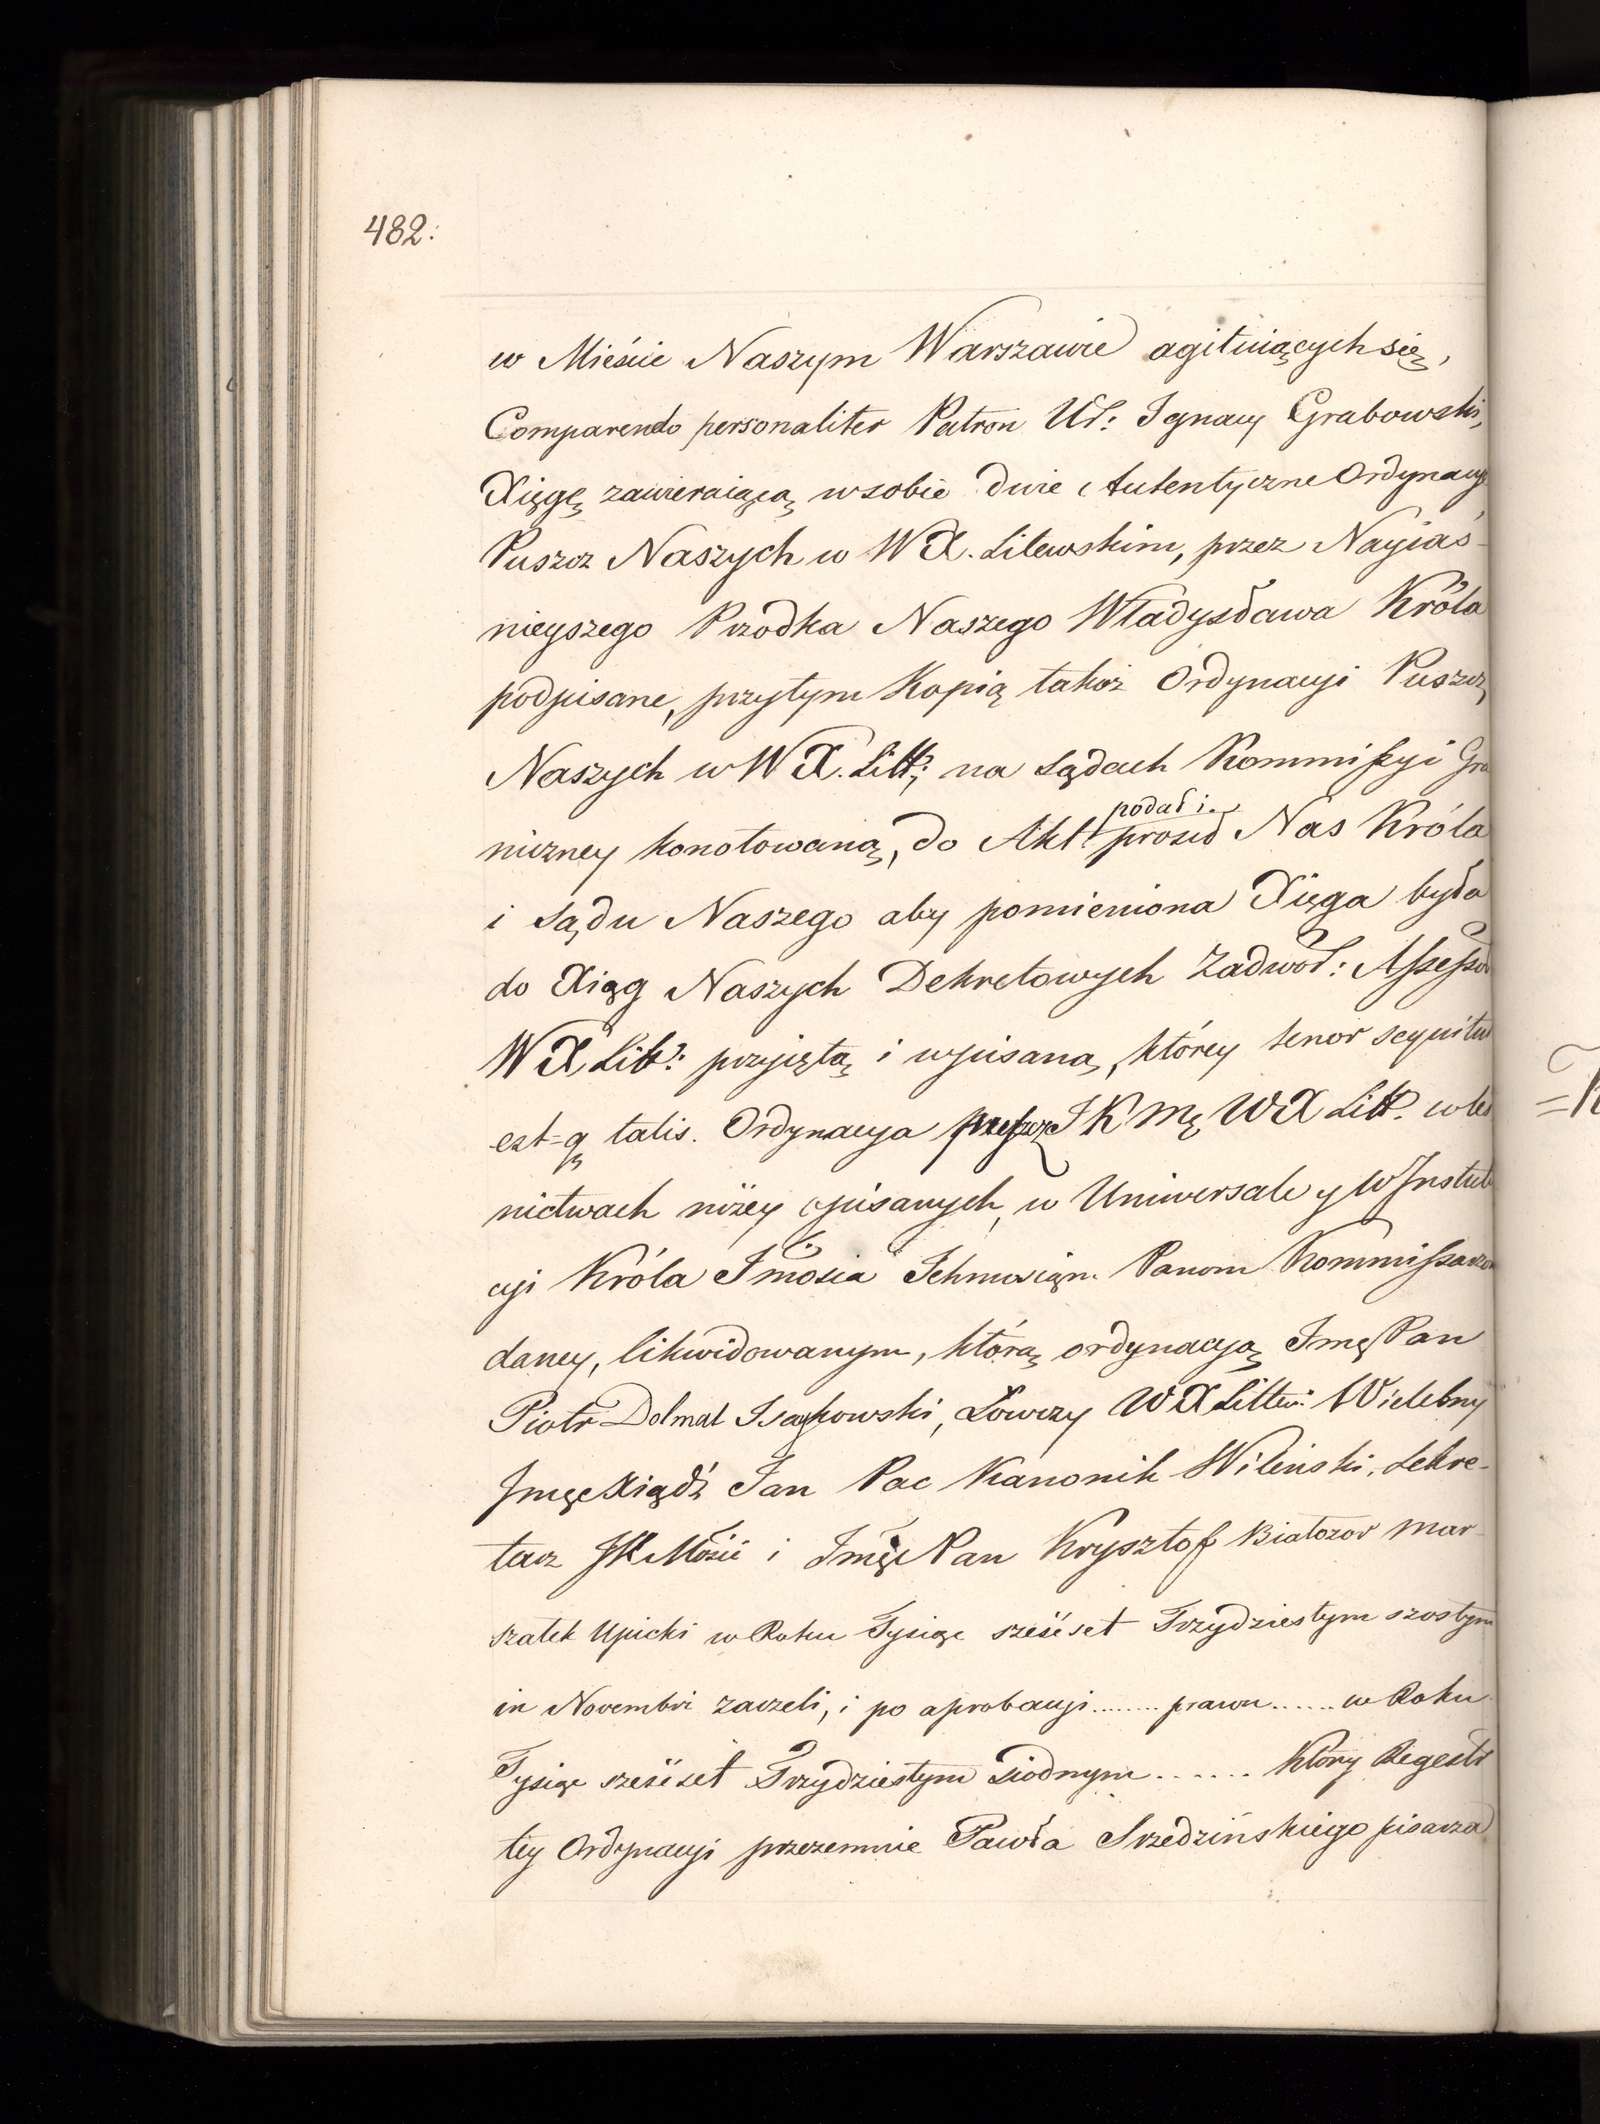 482:
w Mieście Naszym Warszawie agituiących się,
Comparendo personaliter Patron Ur: Ignacy Grabowski,
Xięgę zawieraiącą w sobie dwie Autentyczne Ordynacye
Puszcz Naszych w W X. Litewskim, przez Nayiaś-
nieyszego Przodka Naszego Władysława Króla
podpisane, przytym Kopią takoż Ordynacyi Puszcz
Naszych w W X. Litt; na Sądach Kommissyi Gra
niczney konotowaną, do Akt podał i prosił Nas Króla
i Sądu Naszego aby pomieniona Xięga była
do Xiąg Naszych Dekretowych Zadwor: Assessor
W X Litt: przyiętą i wpisaną, którey tenor sequitur
est=q talis. Ordynacya J K Mę W X Litt. w leś
nictwach niżey opisanych, w Uniwersale y w Instuk
cyi Króla Jmosia Ichmosiąm Panom Kommissarzom
daney, likwidowanym, którą ordynacyą Jmę Pan
Piotr Dolmat Isaykowski, Łowczy W X Littew: Wielebny
Jmęc Xiądź Jan Pac Kanonik Wileński, Sekre-
tarz JK Mości i Jmęc Pan Krysztof Białozor Mar-
szałek Upicki w Roku Tysiąc sześćset Trzydziestym szostym
in Novembri zaczeli, i po aprobacyi ........ prawu ...... w Roku
Tysiąc sześćset Trzydziestym Siodmym ...... który Regestr
tey Ordynacyi przezemnie Pawła Srzedzińskiego pisarza
=